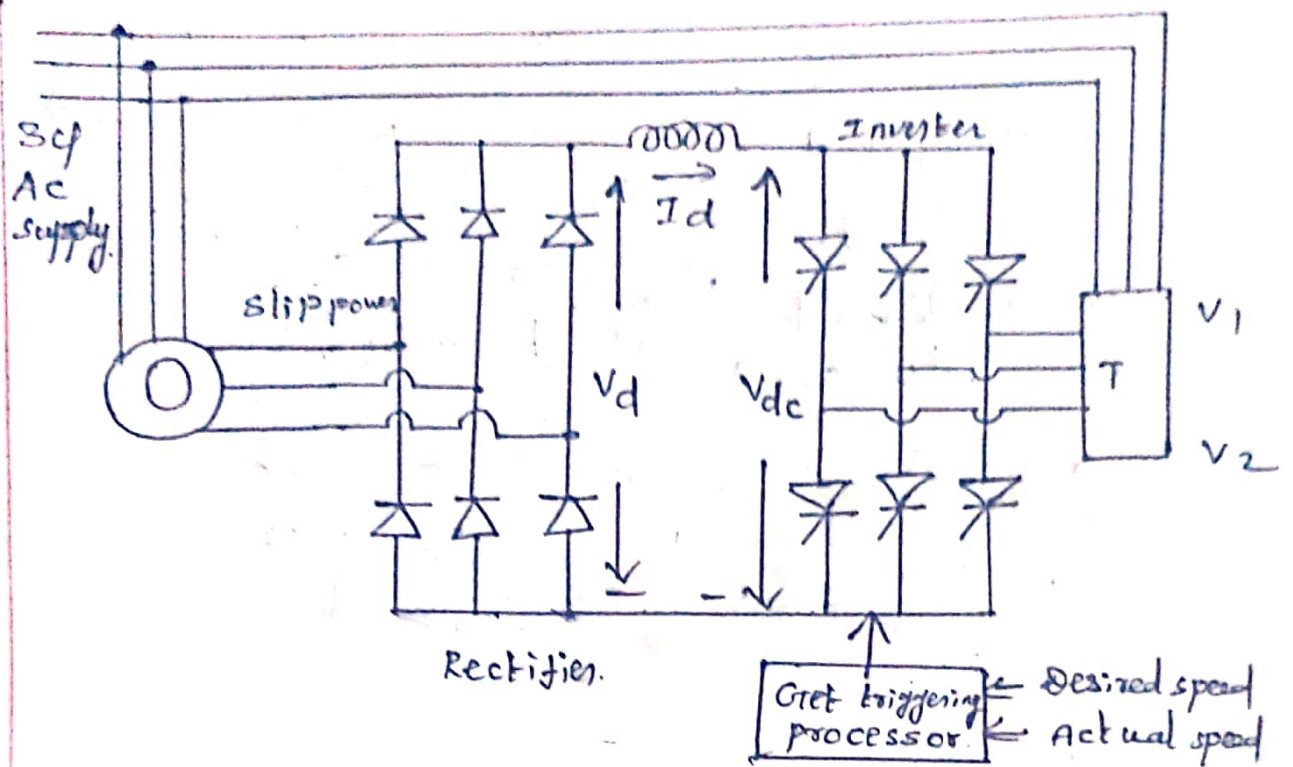 3φ
Ac
supply.
Inverter
Id
slip power
Vd
Vdc
V1
T
V2
Rectifier.
Get triggering
processor.
Desired speed
Actual speed